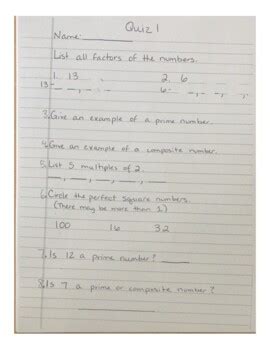 Quiz 1
Name:
List all factors of the numbers.
1. 13 2. 6
13- _, _ 6- _, _, _, _
3. Give an example of a prime number.
4. Give an example of a composite number.
5. List 5 multiples of 2.
_, _, _, _, _
6. Circle the perfect square numbers.
(There may be more than 1)
100 16 32
7. Is 12 a prime number?
8. Is 7 a prime or composite number?